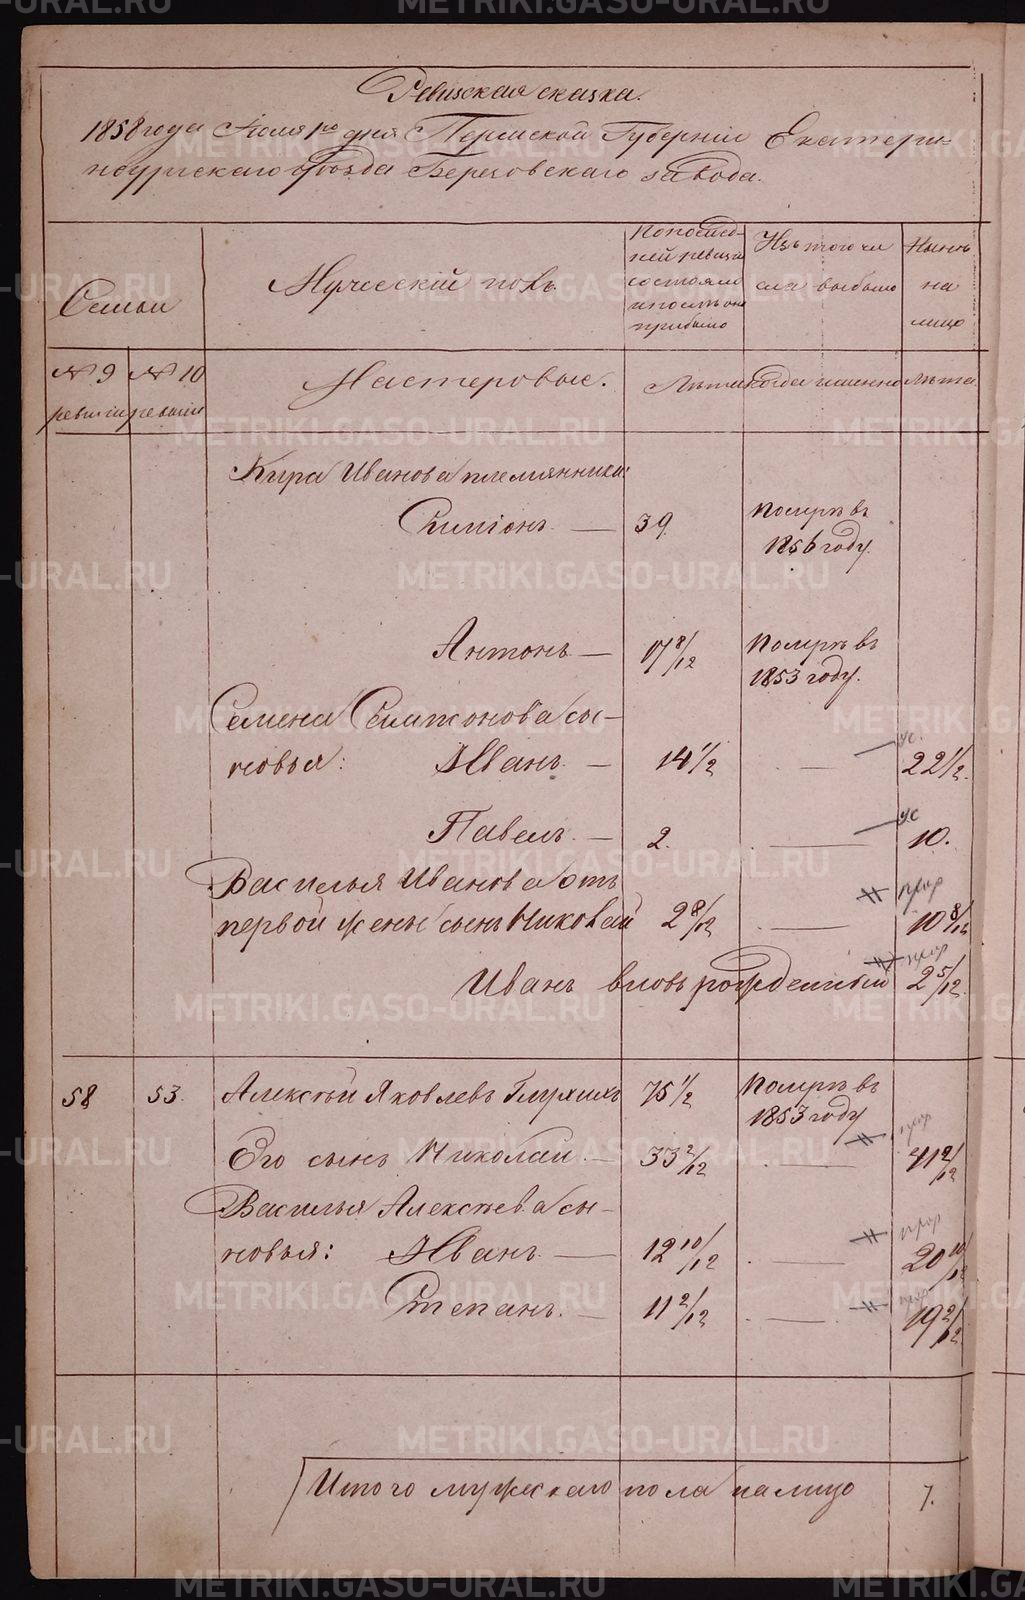 Ревизская сказка.
1858 года Июля 1го дня Пермской Губернiи Екатерин-
бургскаго Уѣзда Березовскаго завода.
Семьи
Мужескiй полъ
По послѣд-
ней ревизiи
состояло
и послѣ оной
прибыло
Изъ того чи
сла выбыло
Нынѣ
на
лицо
№ 9 № 10 Мастеровые. Лѣта когда именно лѣта
ревизiи ревизiи
Кира Иванова племянники:
Симiонъ — 39. Померъ въ
1856 году.
Антонъ — 17 8/12 Померъ въ
1853 году.
Семена Симионова сы-
новья: Иванъ — 14 1/2 — 22 1/2.
Павелъ — 2. — 10.
Василья Иванова отъ
первой жены сынъ Николай 2 8/12 — 10 8/12
Иванъ вновь рожденный 2 5/12.
58 53. Алексѣй Яковлевъ Глухихъ 75 1/2 Померъ въ
1853 году
Его сынъ Николай — 33 2/12 — 41 2/12
Василья Алексѣева сы-
новья: Иванъ — 12 10/12 — 20 10/12
Степанъ. — 11 2/12 — 19 2/12
Итого мужескаго пола на лицо 7.
METRIKI.GASO-URAL.RU